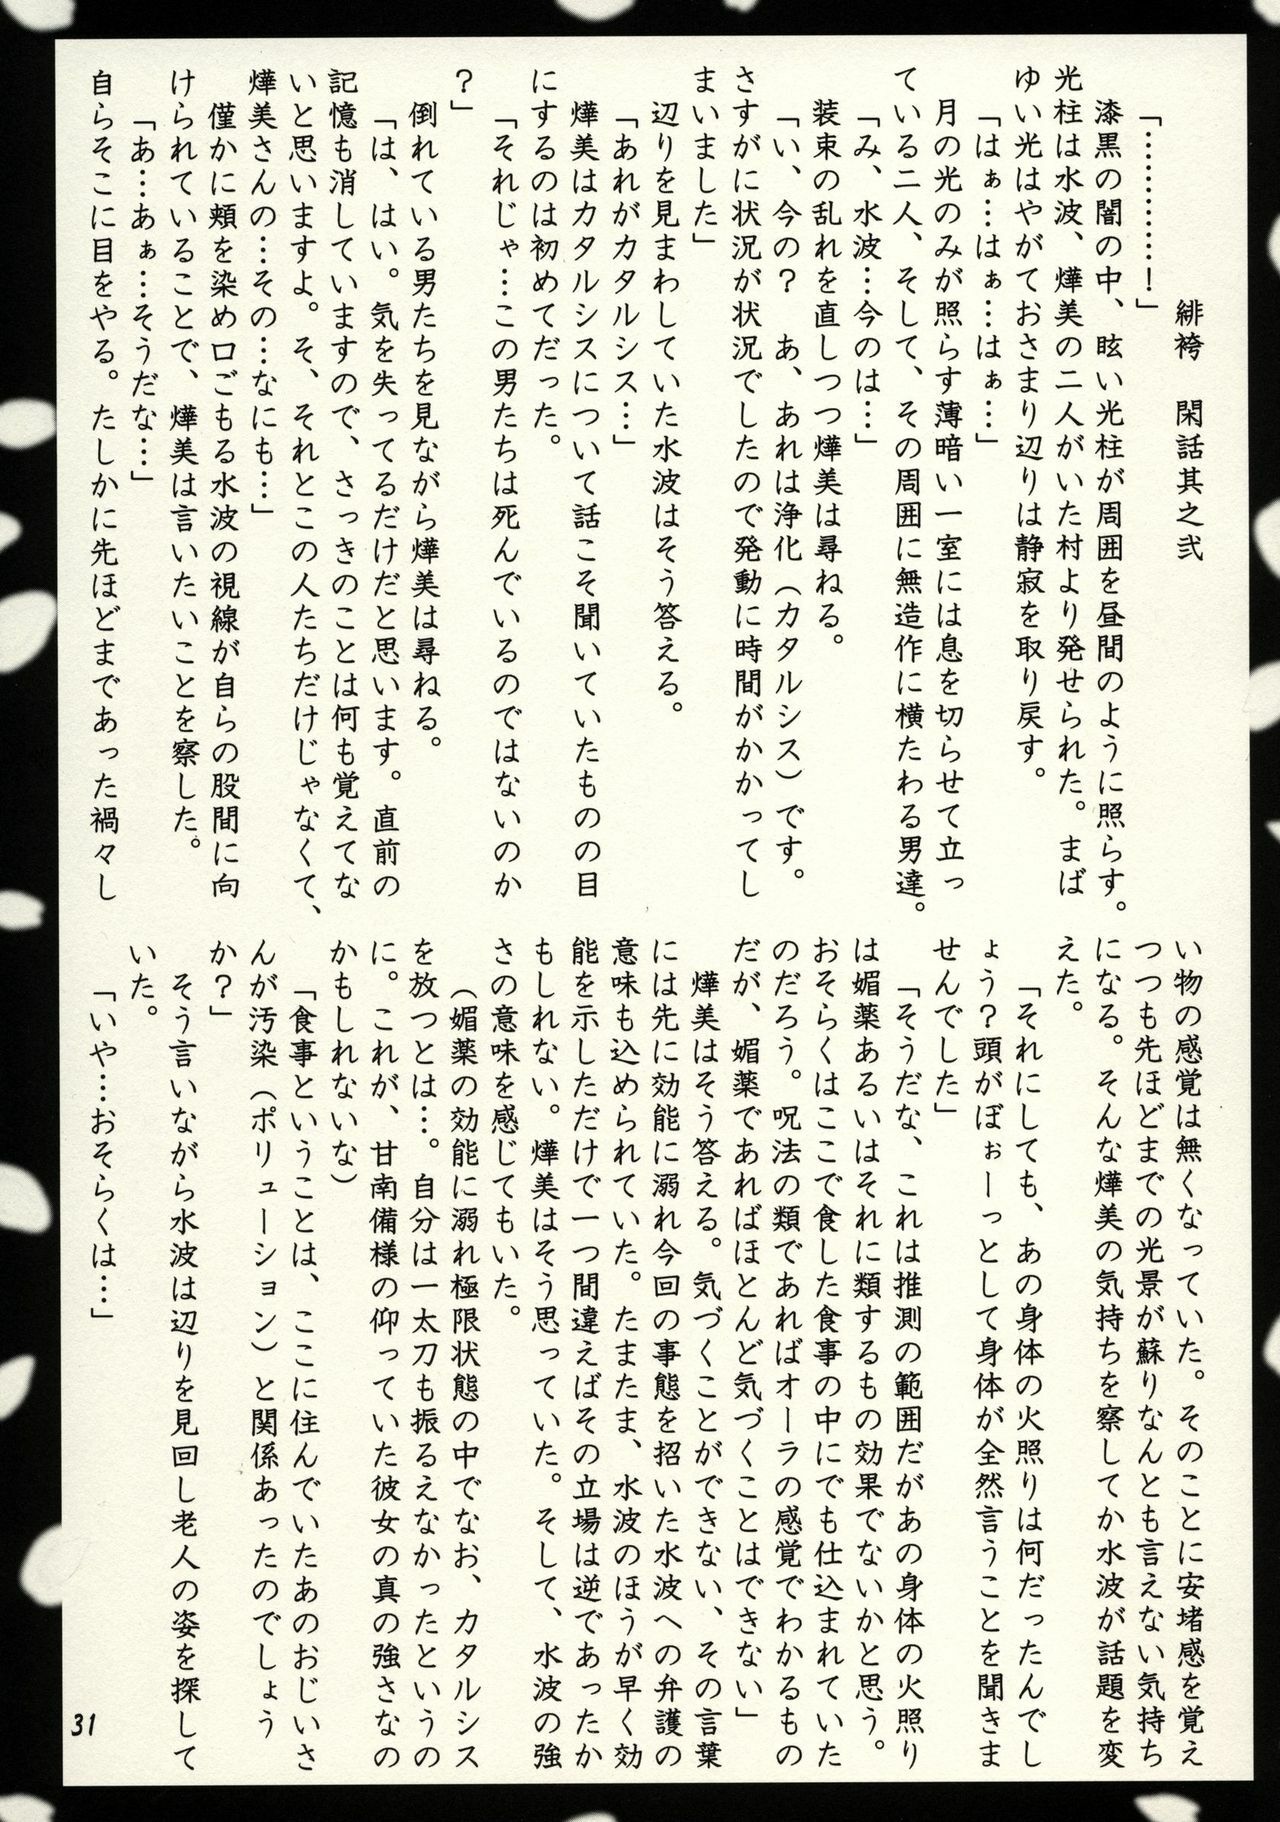 緋袴　閑話其之弐
「…………！」
　漆黒の闇の中、眩い光柱が周囲を昼間のように照らす。
光柱は水波、燁美の二人がいた村より発せられた。まば
ゆい光はやがておさまり辺りは静寂を取り戻す。
「はぁ…はぁ…はぁ…」
　月の光のみが照らす薄暗い一室には息を切らせて立っ
ている二人、そして、その周囲に無造作に横たわる男達。
「み、水波…今のは…」
　装束の乱れを直しつつ燁美は尋ねる。
「い、今の？　あ、あれは浄化（カタルシス）です。
さすがに状況が状況でしたので発動に時間がかかってし
まいました」
　辺りを見まわしていた水波はそう答える。
「あれがカタルシス…」
　燁美はカタルシスについて話こそ聞いていたものの目
にするのは初めてだった。
「それじゃ…この男たちは死んでいるのではないのか
？」
　倒れている男たちを見ながら燁美は尋ねる。
「は、はい。気を失ってるだけだと思います。直前の
記憶も消していますので、さっきのことは何も覚えてな
いと思いますよ。そ、それとこの人たちだけじゃなくて、
燁美さんの…その…なにも…」
　僅かに頬を染め口ごもる水波の視線が自らの股間に向
けられていることで、燁美は言いたいことを察した。
「あ…あぁ…そうだな…」
自らそこに目をやる。たしかに先ほどまであった禍々し
い物の感覚は無くなっていた。そのことに安堵感を覚え
つつも先ほどまでの光景が蘇りなんとも言えない気持ち
になる。そんな燁美の気持ちを察してか水波が話題を変
えた。
「それにしても、あの身体の火照りは何だったんでし
ょう？頭がぼぉーっとして身体が全然言うことを聞きま
せんでした」
「そうだな、これは推測の範囲だがあの身体の火照り
は媚薬あるいはそれに類するもの効果でないかと思う。
おそらくはここで食した食事の中にでも仕込まれていた
のだろう。呪法の類であればオーラの感覚でわかるもの
だが、媚薬であればほとんど気づくことはできない」
　燁美はそう答える。気づくことができない、その言葉
には先に効能に溺れ今回の事態を招いた水波への弁護の
意味も込められていた。たまたま、水波のほうが早く効
能を示しただけで一つ間違えばその立場は逆であったか
もしれない。燁美はそう思っていた。そして、水波の強
さの意味を感じてもいた。
（媚薬の効能に溺れ極限状態の中でなお、カタルシス
を放つとは…。自分は一太刀も振るえなかったというの
に。これが、甘南備様の仰っていた彼女の真の強さなの
かもしれないな）
「食事ということは、ここに住んでいたあのおじいさ
んが汚染（ポリューション）と関係あったのでしょう
か？」
　そう言いながら水波は辺りを見回し老人の姿を探して
いた。
「いや…おそらくは…」
31